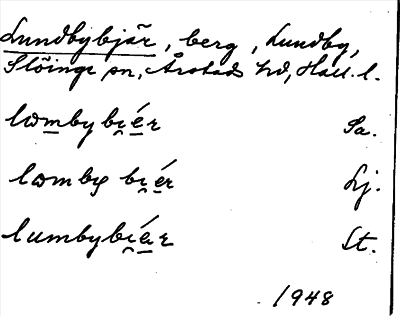 Lundbybjär, berg, Lundby,
Slöinge sn, Årstads hd, Hall. l.
lɷmby bi̯ér Sa.
lɷmby bi̯ér Lj.
lumbybi̯ér St.
1948